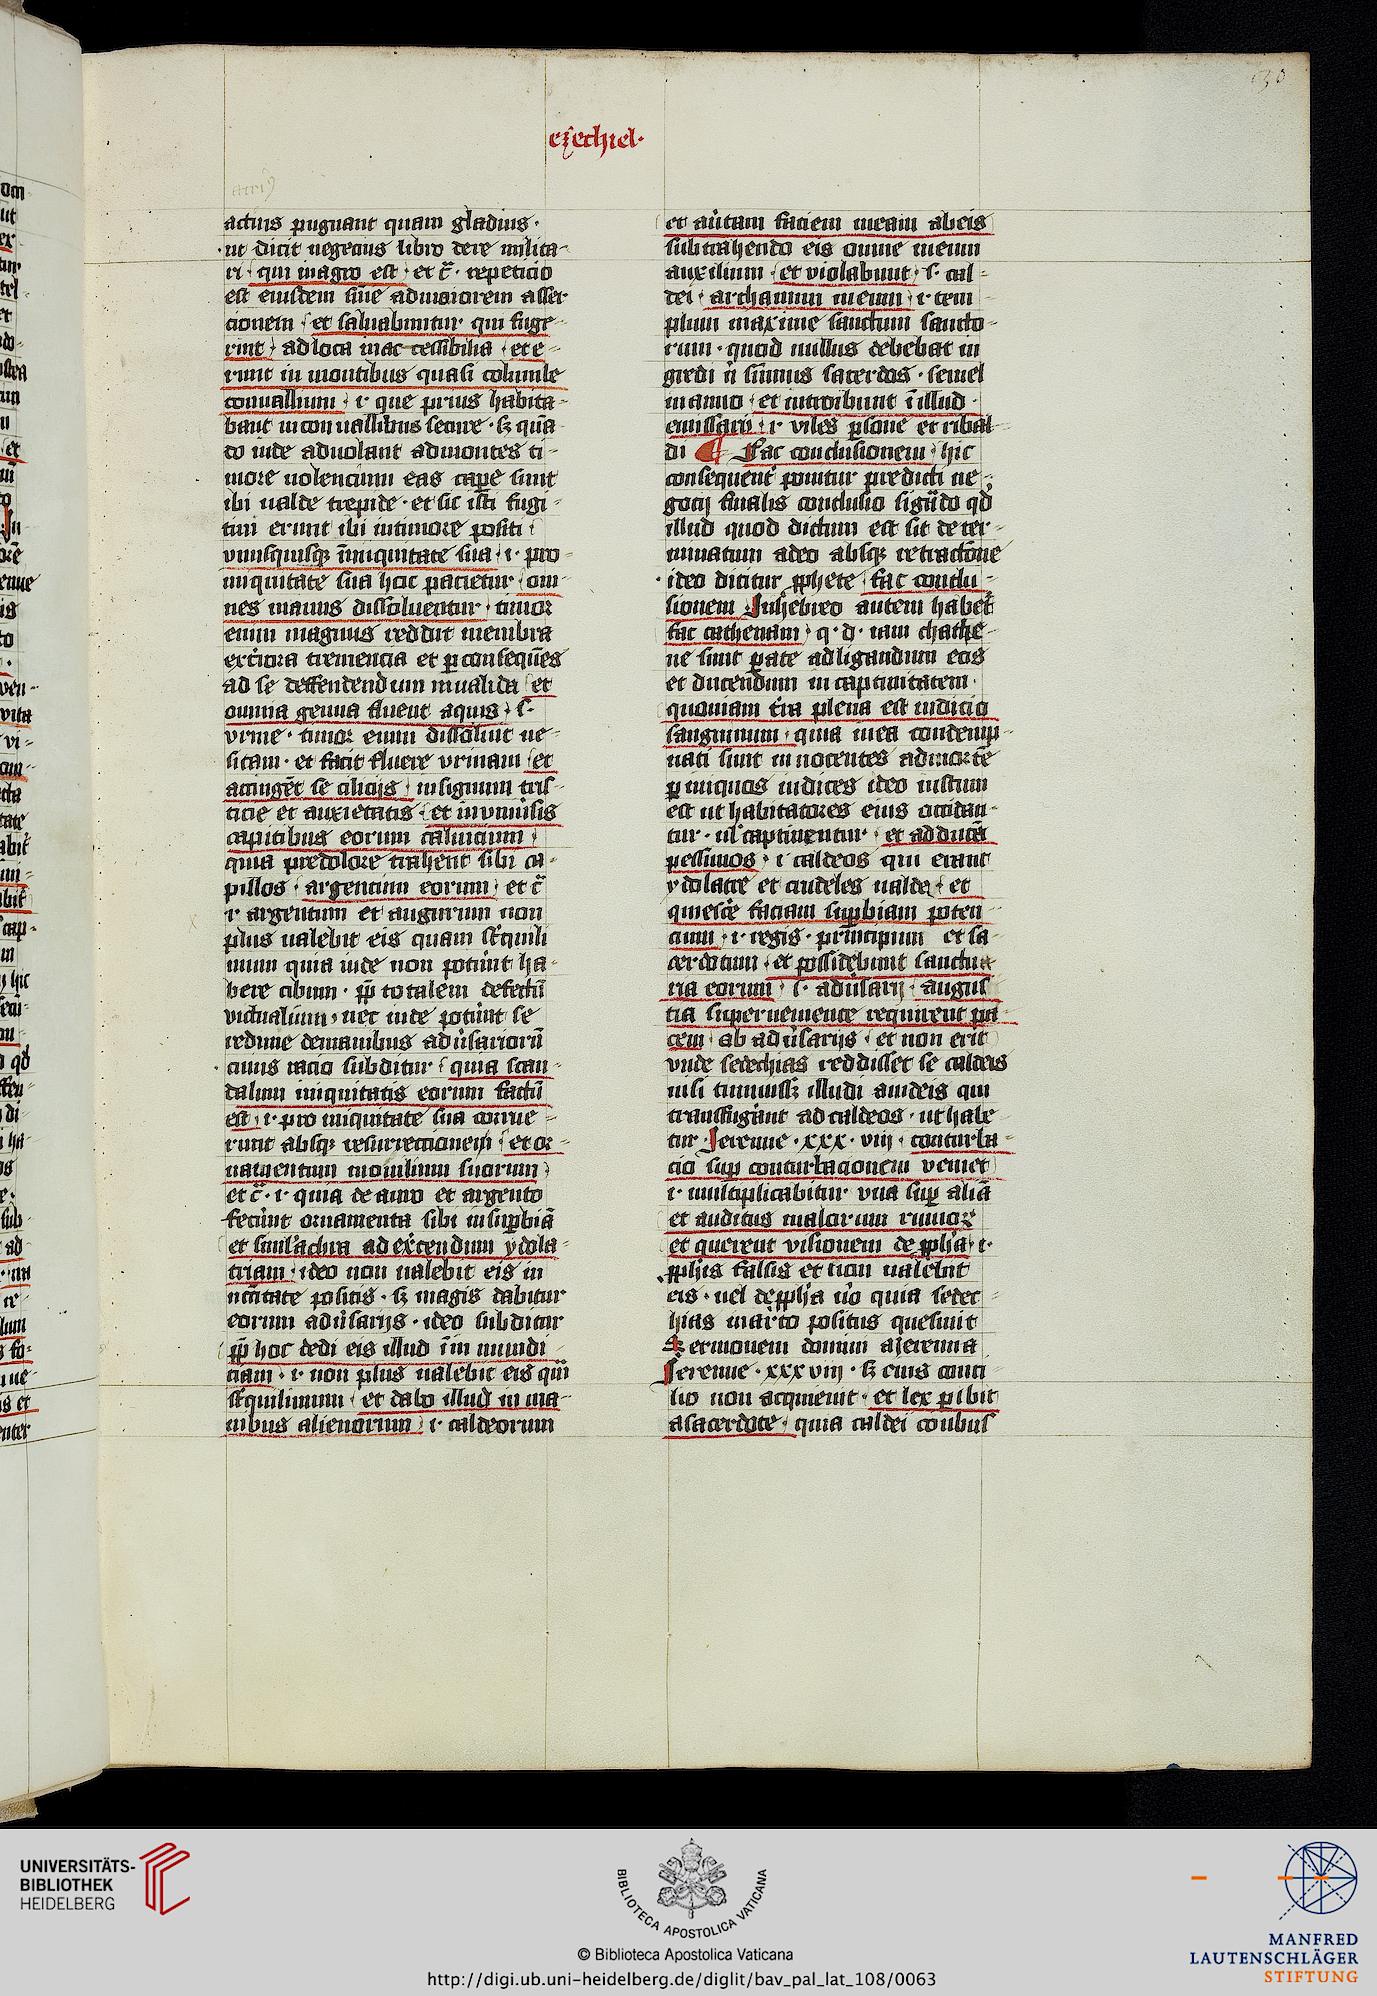 30
ezechiel·
acrius
acrius pugnant quam gladius·
ut dicit uegecius libro dere milita-
ri· qui inagro est· et c̄· repeticio
est eiusdem sn̄ie admaiorem asser
cionem et saluabuntur qui fuge-
rint adloca inac cessibilia et e-
runt in montibus quasi columbe
conuallium ·i· que prius habita-
bant inconuallibus secure· sꝫ qn̄-
do inde aduolant admontes ti-
more uolencium eas cape sunt
ibi ualde trepide· et sic isti fugi-
tiui erunt ibi intimore positi
vnusquisqꝫ iniquitate sua ·i· pro
iniquitate sua hoc pacietur· om-
nes manus dissoluentur· timor
enim magnus reddit membra
exteriora tremencia et p conseques
ad se deffendendum inualida et
omnia genua fluent aquis ·s·
vrine· timor enim dissoluit ue-
sicam· et facit fluere vrinam et
accinget se cilicijs insignum tris-
ticie et anxietatis· et inuniuersis
capitibus eorum caluicium
quia predolore trahent sibi ca-
pillos· argentum eorum et c̄
·i· argentum et augurum non
plus ualebit eis quam sterquili
nium quia inde non poterunt ha-
bere cibum· ꝓpter totalem defectū
victualium, nec inde poterunt se
redime demanibus aduersariorū
cuius racio subditur· quia scan-
dalum iniquitatis eorum factū
est ·i· pro iniquitate sua corrue-
runt absqꝫ resurrectionem et or-
namentum monilium suorum
et c̄· ·i· quia de auro et argento
fecerunt ornamenta sibi insuperbiā
et simulachra ad exercendum ydola-
triam· ideo non ualebit eis in
necessitate positis· sꝫ magis dabitur
eorum aduersarijs· ideo subditur
ꝓpter hoc dedi eis illud in inmundi
ciam ·i· non plus ualebit eis quam
sterquilinium et dabo illud in ma-
nibus alienorum ·i· caldeorum
et auertam faciem meam abeis
subtrahendo eis omne meum
auxilium et violabunt ·s· cal-
dei archanum meum ·i· tem
plum maxime sanctum sancto-
rum· quod nullus debebat in
gredi nisi summus sacerdos· semel
inanno et introibunt in illud
emissarij ·i· viles persone et ribal-
di ¶ Fac conclusionem hic
consequenter ponitur predicti ne-
gocij finalis conclusio significando qd̄
illud quod dictum est sit de ter-
minatum adeo absqꝫ retractione
ideo dicitur ꝓphete fac conclu-
sionem Inhebreo autem habet
fac cathenam q· d· iam chathe-
ne sunt parate adligandum eos
et ducendum in captiuitatem·
quoniam terra plena est iudicio
sanguinum quia inea condemp-
nati sunt innocentes admorte
p iniquos iudices ideo iustum
est ut habitatores eius occidan-
tur· ul captiuentur· et adducam
pessimos ·i· caldeos qui erant
ydolatre et crudeles ualde et
quiescere faciam superbiam poten
cium ·i· regis· principum et sa-
cerdotum et possidebunt sanctua
ria eorum ·s· aduersarij augus
tia superueniente requirent pa-
cem ab aduersarijs et non erit
vnde sedechias reddisset se caldeis
nisi timuissꝫ illudi aiudeis qui
transfugerant ad caldeos· ut habe
tur Jeremie ·xxx· viij· conturba-
cio super conturbacionem veniet
·i· multiplicabitur vna super aliā
et auditus malorum rumor
et querent visionem de ꝓpheta ·i·
ꝓphis falsis et non ualebit
eis· uel de ꝓpheta uero quia sedec-
hias inarto positus quesiuit
Sermonem domini aJeremia
Jeremie ·xxxviij· sꝫ eius consi
lio non acquieuit et lex peribit
asacerdote quia caldei combus
UNIVERSITÄTS-
BIBLIOTHEK
HEIDELBERG
BIBLIOTECA APOSTOLICA VATICANA
© Biblioteca Apostolica Vaticana
http://digi.ub.uni-heidelberg.de/diglit/bav_pal_lat_108/0063
MANFRED
LAUTENSCHLÄGER
STIFTUNG